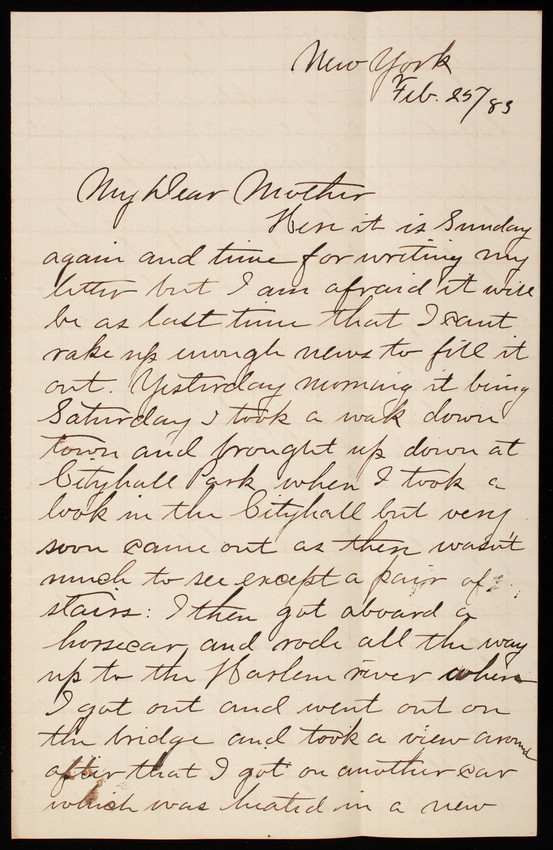 New York
Feb. 25/83
My Dear Mother
Here it is Sunday
again and time for writing my
letter but I am afraid it will
be as last time that I cant
rake up enough news to fill it
out. Yesterday morning it being
Saturday I took a walk down
town and brought up down at
Cityhall Park when I took a
look in the Cityhall but very
soon came out as there wasn't
much to see except a pair of
stairs: I then got aboard a
horsecar and rode all the way
up to the Harlem river where
I got out and went out on
the bridge and took a view around
after that I got on another car
which was heated in a new